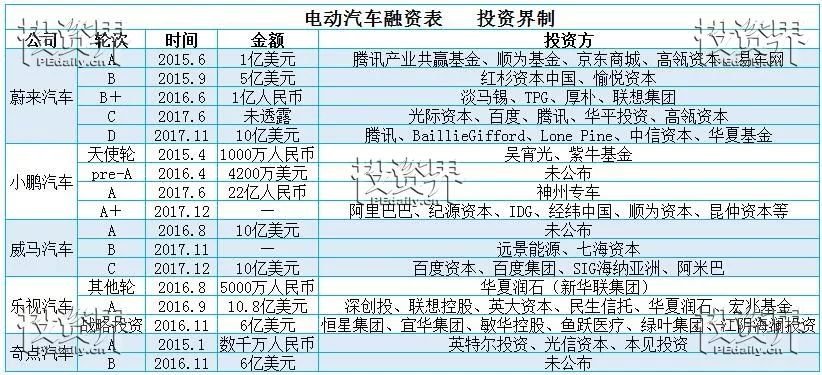 电动汽车融资表 投资界制
公司 轮次 时间 金额 投资方
蔚来汽车 A 2015.6 1亿美元 腾讯产业共赢基金、顺为基金、京东商城、高瓴资本、易车网
B 2015.9 5亿美元 红杉资本中国、愉悦资本
B+ 2016.6 1亿人民币 淡马锡、TPG、厚朴、联想集团
C 2017.6 未透露 光际资本、百度、腾讯、华平投资、高瓴资本
D 2017.11 10亿美元 腾讯、BaillieGifford、Lone Pine、中信资本、华夏基金
小鹏汽车 天使轮 2015.4 1000万人民币 吴宵光、紫牛基金
pre-A 2016.4 4200万美元 未公布
A 2017.6 22亿人民币 神州专车
A+ 2017.12 — 阿里巴巴、纪源资本、IDG、经纬中国、顺为资本、昆仲资本等
威马汽车 A 2016.8 10亿美元 未公布
B 2017.11 — 远景能源、七海资本
C 2017.12 10亿美元 百度资本、百度集团、SIG海纳亚洲、阿米巴
乐视汽车 其他轮 2016.8 5000万人民币 华夏润石（新华联集团）
A 2016.9 10.8亿美元 深创投、联想控股、英大资本、民生信托、华夏润石、宏兆基金
战略投资 2016.11 6亿美元 恒星集团、宜华集团、敏华控股、鱼跃医疗、绿叶集团、江阴海澜投资
奇点汽车 A 2015.1 数千万人民币 英特尔投资、光信资本、本见投资
B 2016.11 6亿美元 未公布
投资界
PEdaily.cn
投资界
PEdaily.cn
投资界
PEdaily.cn
投资界
PEdaily.cn
投资界
PEdaily.cn